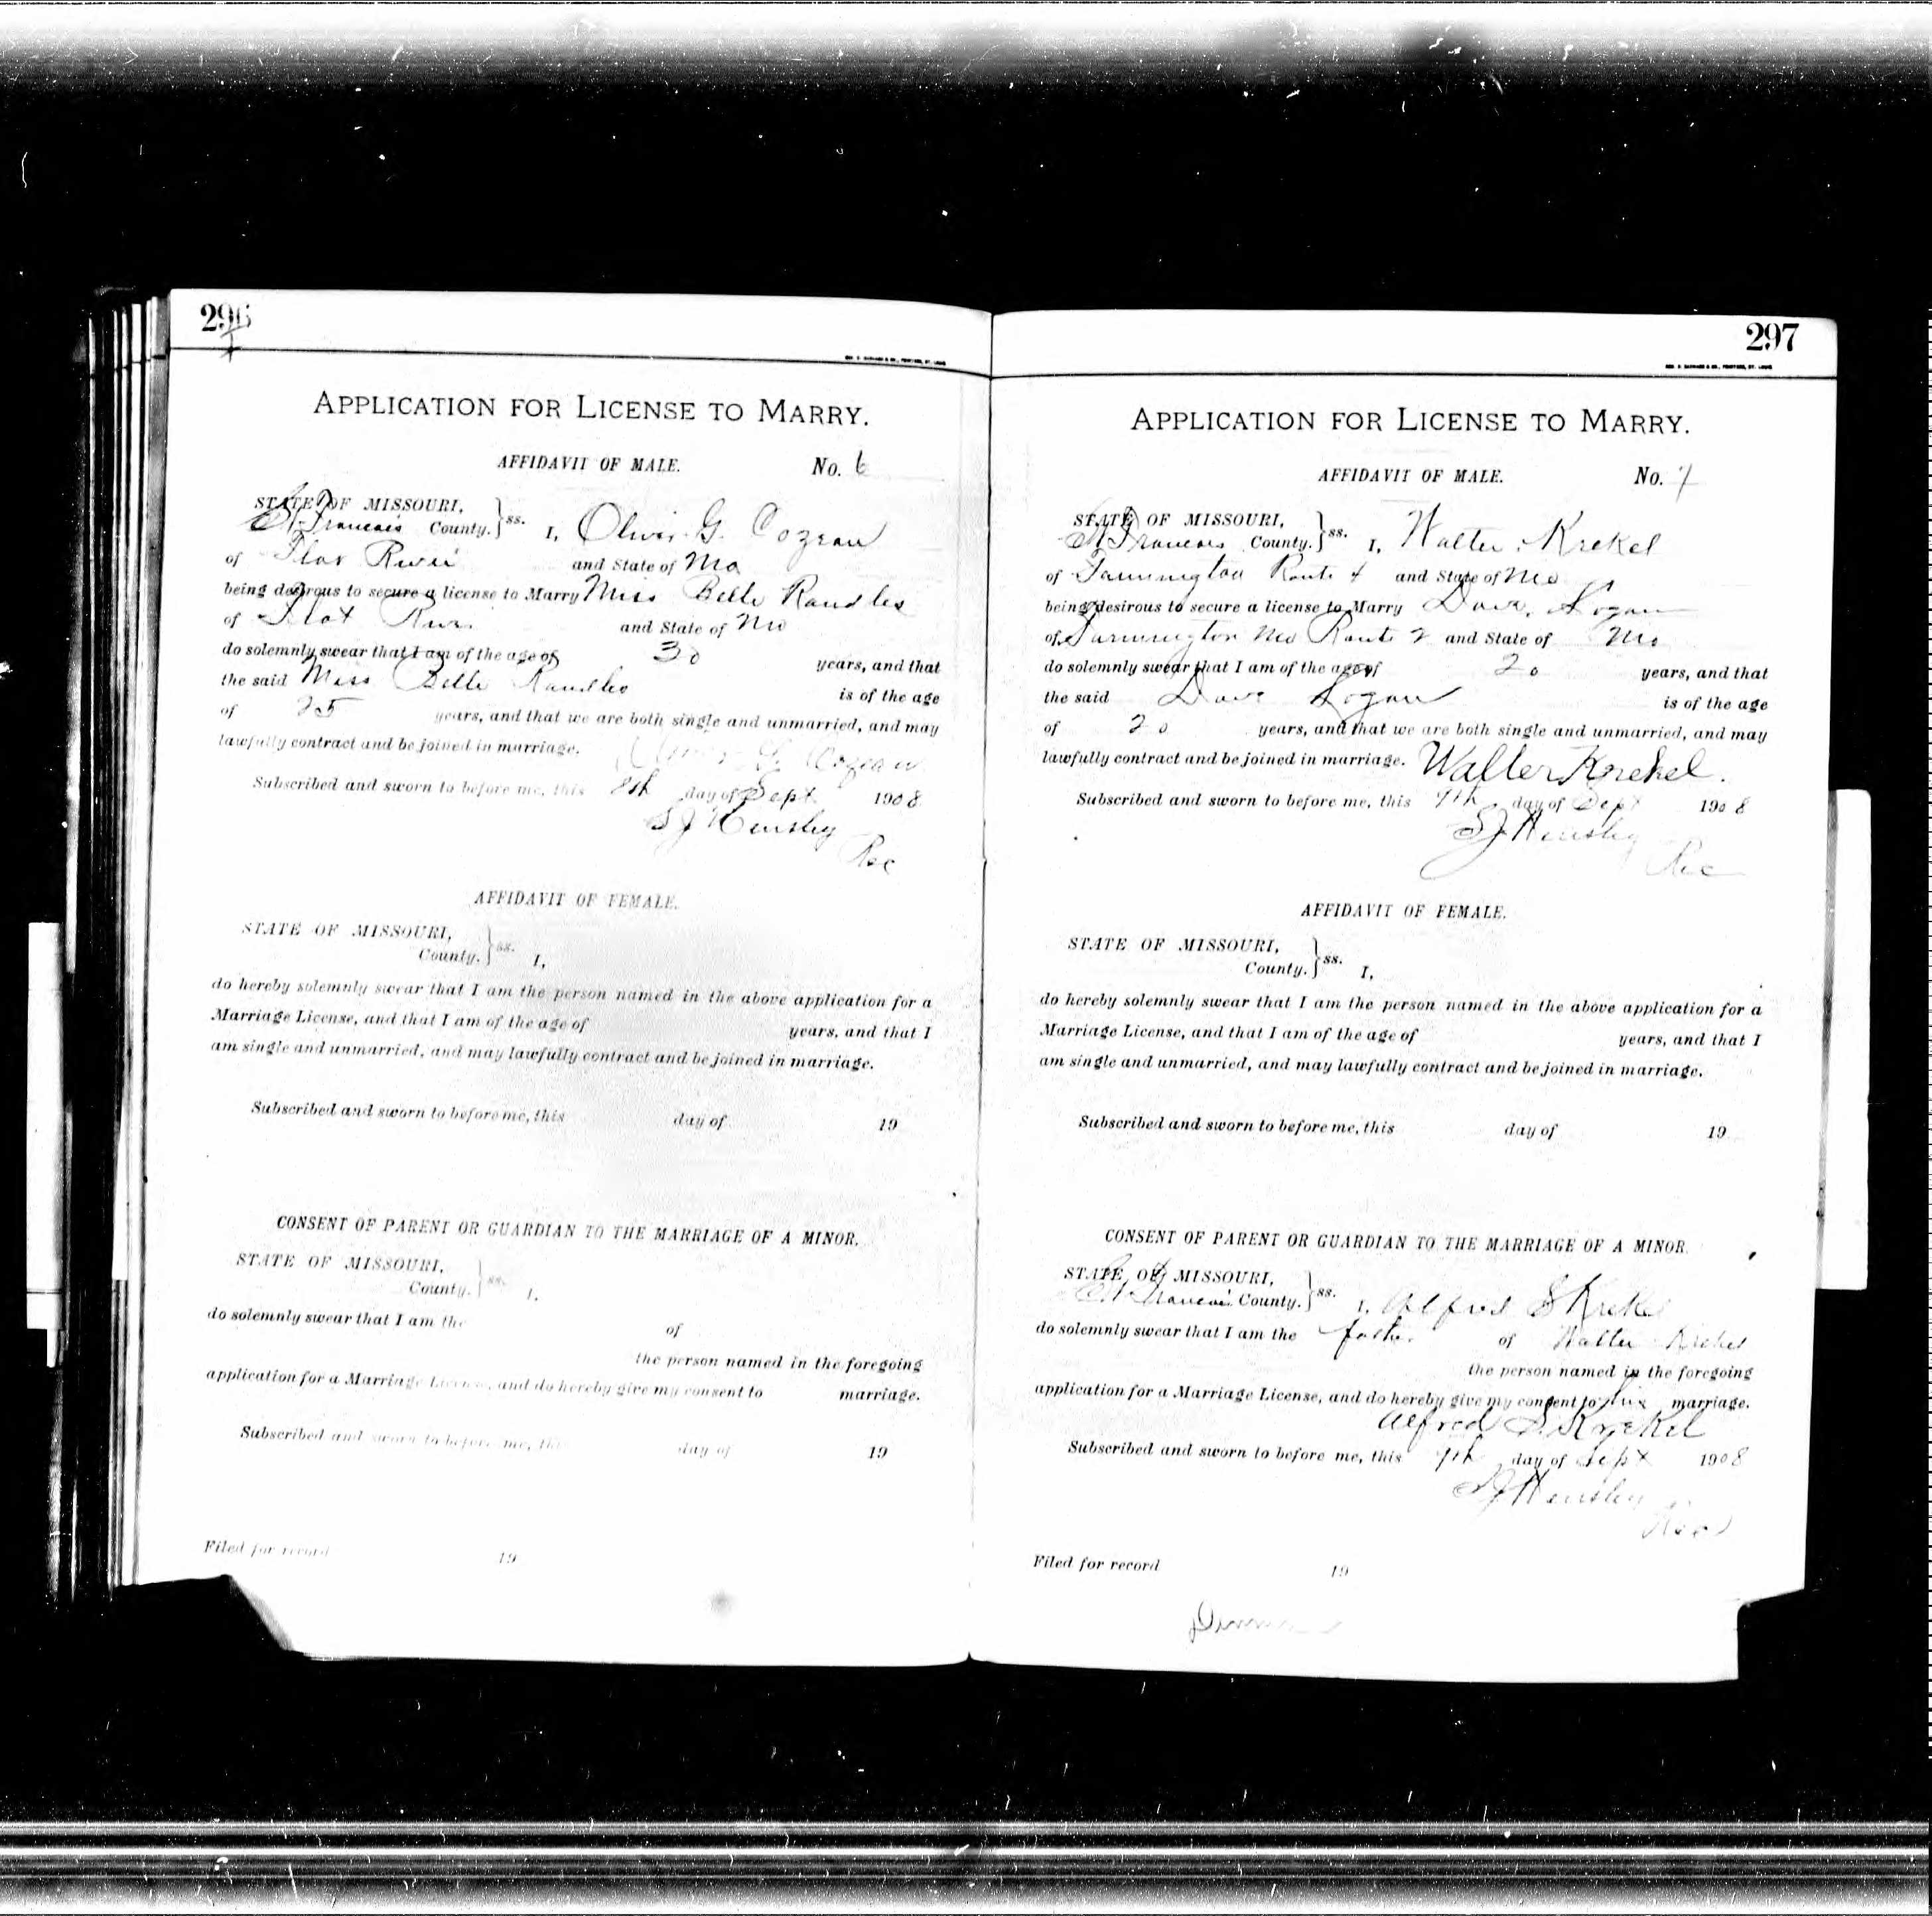 296
APPLICATION FOR LICENSE TO MARRY.
AFFIDAVIT OF MALE. No. 6
STATE OF MISSOURI,
St Francois County. } ss. I, Oliver G. Cozean
of Flat River and State of Mo
being desirous to secure a license to Marry Miss Belle Randles
of Flat River and State of Mo
do solemnly swear that I am of the age of 30 years, and that
the said Miss Belle Randles is of the age
of 25 years, and that we are both single and unmarried, and may
lawfully contract and be joined in marriage. Oliver G. Cozean
Subscribed and sworn to before me, this 8th day of Sept 1908
S J Hensley
Rec
AFFIDAVIT OF FEMALE.
STATE OF MISSOURI,
County. } ss. I,
do hereby solemnly swear that I am the person named in the above application for a
Marriage License, and that I am of the age of years, and that I
am single and unmarried, and may lawfully contract and be joined in marriage.
Subscribed and sworn to before me, this day of 19
CONSENT OF PARENT OR GUARDIAN TO THE MARRIAGE OF A MINOR.
STATE OF MISSOURI,
County. } ss. I,
do solemnly swear that I am the of
the person named in the foregoing
application for a Marriage License, and do hereby give my consent to marriage.
Subscribed and sworn to before me, this day of 19
Filed for record 19
297
APPLICATION FOR LICENSE TO MARRY.
AFFIDAVIT OF MALE. No. 7
STATE OF MISSOURI,
St Francois County. } ss. I, Walter Krekel
of Farmington Route 4 and State of Mo
being desirous to secure a license to Marry Logan
of Farmington Mo Route 2 and State of Mo
do solemnly swear that I am of the age of 20 years, and that
the said Logan is of the age
of 20 years, and that we are both single and unmarried, and may
lawfully contract and be joined in marriage. Walter Krekel.
Subscribed and sworn to before me, this 9th day of Sept 1908
S J Hensley
Rec
AFFIDAVIT OF FEMALE.
STATE OF MISSOURI,
County. } ss. I,
do hereby solemnly swear that I am the person named in the above application for a
Marriage License, and that I am of the age of years, and that I
am single and unmarried, and may lawfully contract and be joined in marriage.
Subscribed and sworn to before me, this day of 19
CONSENT OF PARENT OR GUARDIAN TO THE MARRIAGE OF A MINOR.
STATE OF MISSOURI,
St Francois County. } ss. I, Alfred S Krekel
do solemnly swear that I am the father of Walter Krekel
the person named in the foregoing
application for a Marriage License, and do hereby give my consent to his marriage.
Alfred S. Krekel
Subscribed and sworn to before me, this 9th day of Sept 1908
S J Hensley
Rec
Filed for record 19